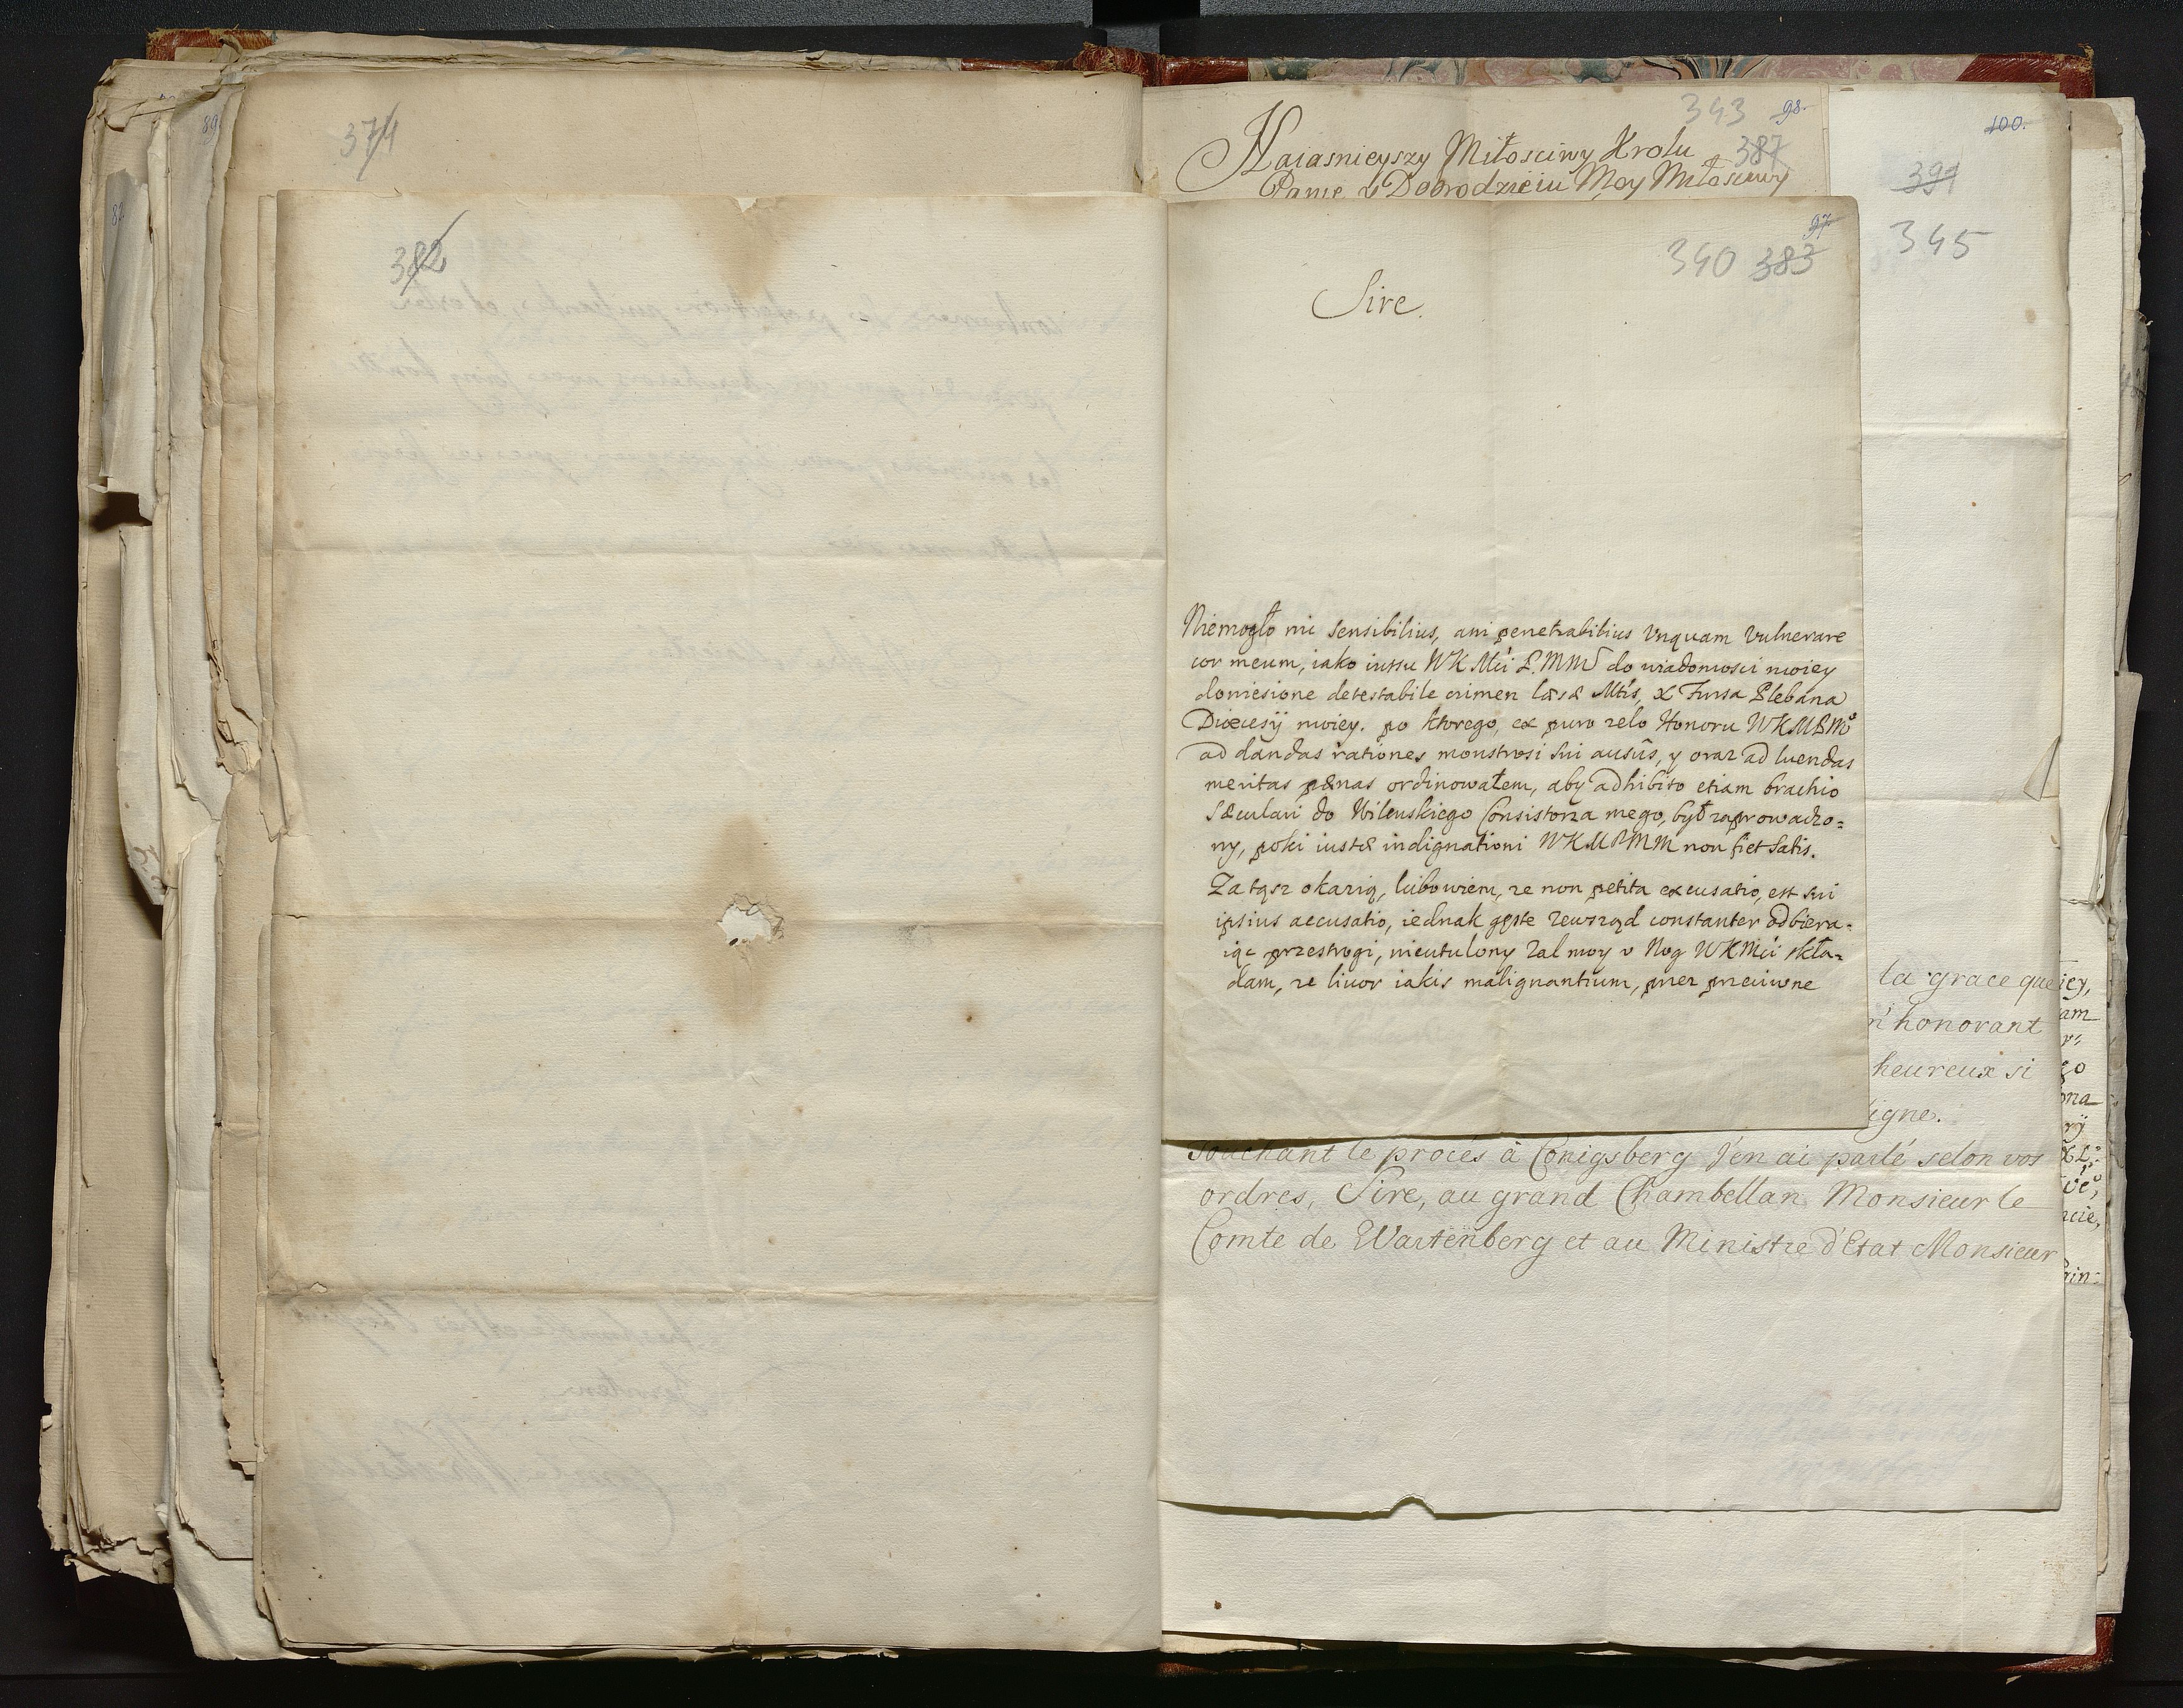 374
382
89
82
343 98.
Naiasnieyszy Miłosciwy Krolu 387
Panie y Dobrodzieiu Moy Miłosciwy
100.
391
345
97
340 383
Sire.
Niemogło nic sensibilius, ani penetrabilius Vnquam Vulnerare
cor meum, iako iussu WKMci P.MMo do wiadomosci moiey
doniesione detestabile crimen læsæ Mtis, X Fursa Plebana
Diæcesÿ moiey. po ktorego, ex puro zelo Honoru WKMPMo
ad dandas rationes monstrosi sui ausûs, y oraz ad luendas
meritas pænas ordinowałem, aby adhibito etiam brachio
Sæculari do Wilenskiego Consistorza mego, był zaprowadzo=
ny, poki iustæ indignationi WKMPMM non fiet satis.
Za tąsz okazią, lubo wiem, ze non petita excusatio, est sui
ipsius accusatio, iednak gęste zewsząd constanter odbiera=
iąc przestrogi, nieutulony zal moy v Nog WKMci skła=
dam, ze livor iakis malignantium, przez przeciwne
la grace que
m'honorant
heureux si
digne.
Touchant le procés à Conigsberg J'en ai parlé selon vos
ordres, Sire, au grand Chambellan Monsieur le
Comte de Wartenberg et au Ministre d'Etat Monsieur
iey,
am
go
ona
rÿ
cie,